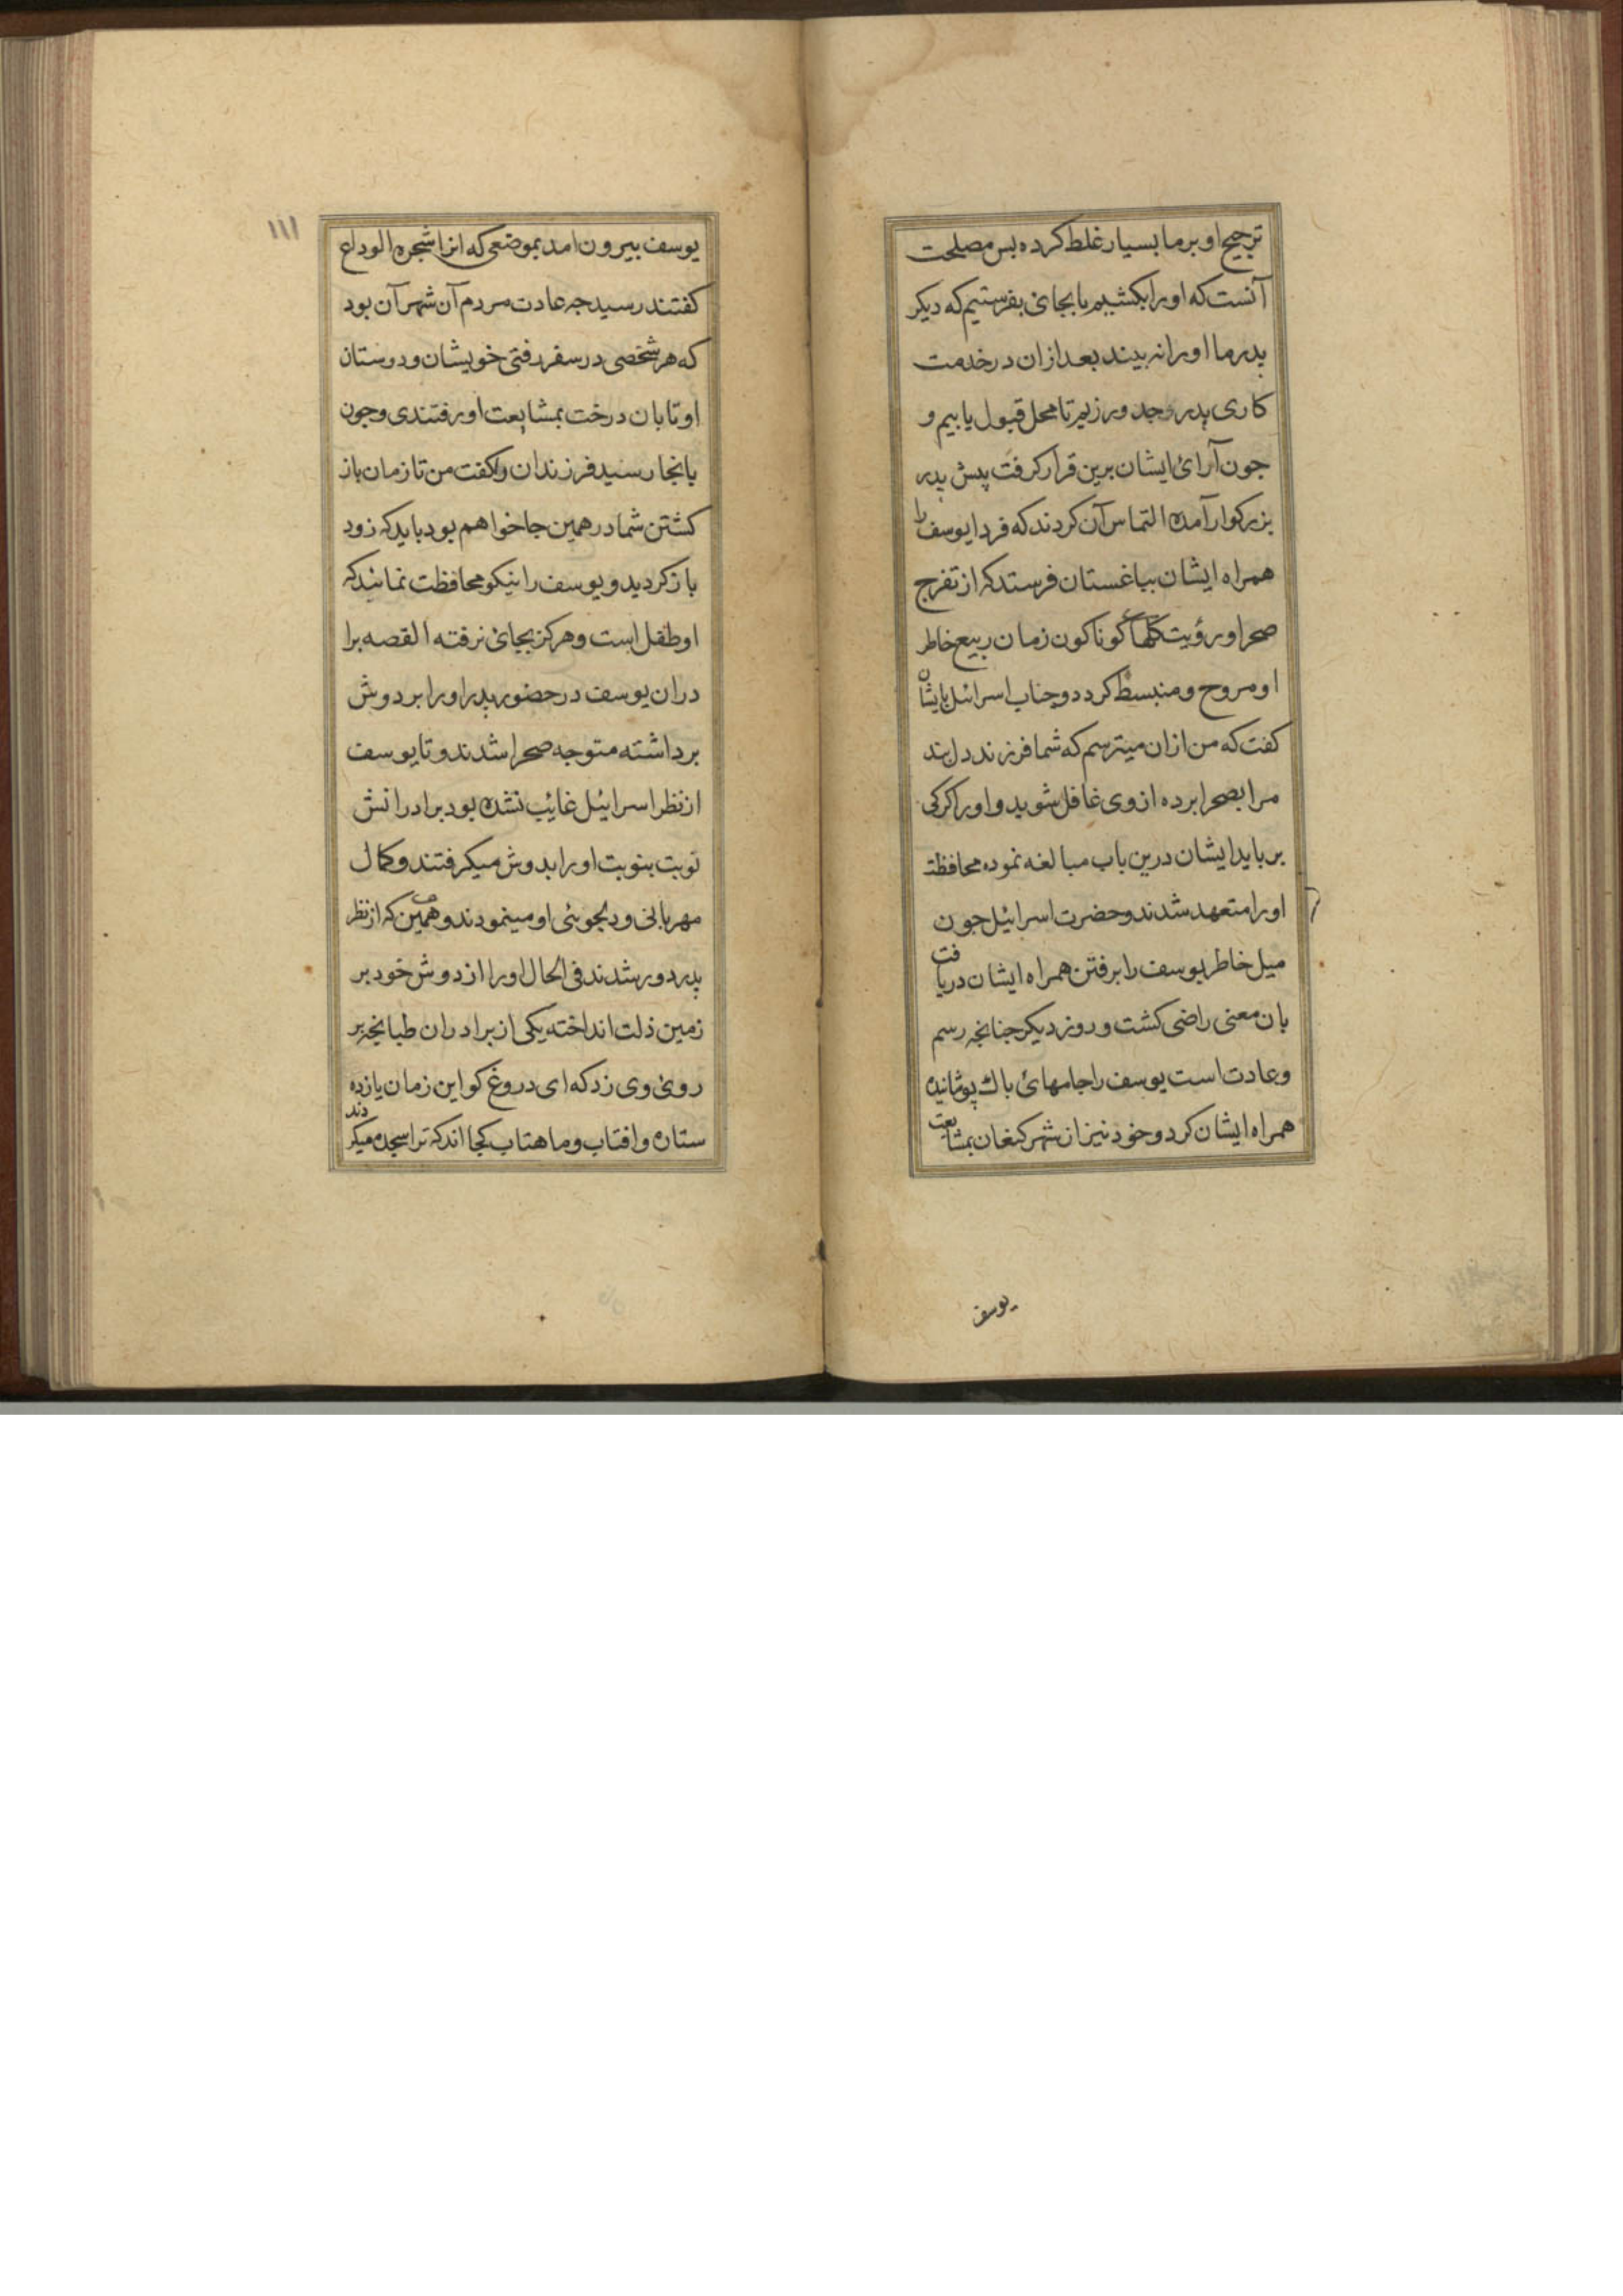 ترجیح او بر ما بسیار غلط کرده بس مصلحت
آنست که او را بکشیم یا بجائی بفرستیم که دیکر
بدر ما او را نه بیند بعد ازان در خدمت
کاری بدر وجد ورزیم تا محل قبول یابیم و
جون آرائ ایشان برین قرار کرفت پیش بدر
بزرکوار آمده التماس آن کردند که فردا یوسف را
همراه ایشان بباغستان فرستد که از تفرج
صحرا و رؤیت کلهاء کوناکون زمان ربیع خاطر
او مروح و منبسط کردد و جناب اسرائیل بایشان
کفت که من ازان میترسم که شما فرزند دلبند
مرا بصحرا برده از وی غافل شوید و او را کرکی
بر باید ایشان درین باب مبالغه نموده محافظت
او را متعهد شدند و حضرت اسرائیل جون
میل خاطر یوسف را برفتن همراه ایشان دریافت
بان معنی راضی کشت و روز دیکر جنانجه رسم
و عادت است یوسف را جامهائ باک پوشانیده
همراه ایشان کرد و خود نیز از شهر کنعان بمشایعت
یوسف
۱۱۱
یوسف بیرون امد بموضعی که انرا شجره الوداع
کفتند رسید جه عادت مردم آن شهر آن بود
که هر شخصی در سفر رفتی خویشان و دوستان
او تا بان درخت بمشایعت او رفتندی و جون
بانجا رسید فرزندان را کفت من تا زمان باز
کشتن شما در همین جا خواهم بود باید که زود
باز کردید و یوسف را نیکو محافظت نمائید که
او طفل است و هرکز بجائی نرفته القصه برا
دران یوسف در حضور پدر او را بر دوش
برداشته متوجه صحرا شدند و تا یوسف
از نظر اسرائیل غایب نشده بود برادرانش
نوبت بنوبت او را بدوش میکرفتند و کمال
مهربانی و دلجوئی او مینمودند و همین که از نظر
پدر دور شدند فی الحال او را از دوش خود بر
زمین ذلت انداخته یکی از برادران طبانجه بر
روئی وی زد که ای دروغ کو این زمان یازده
ستاره و افتاب و ماهتاب کجا اند که ترا سجده میکردند